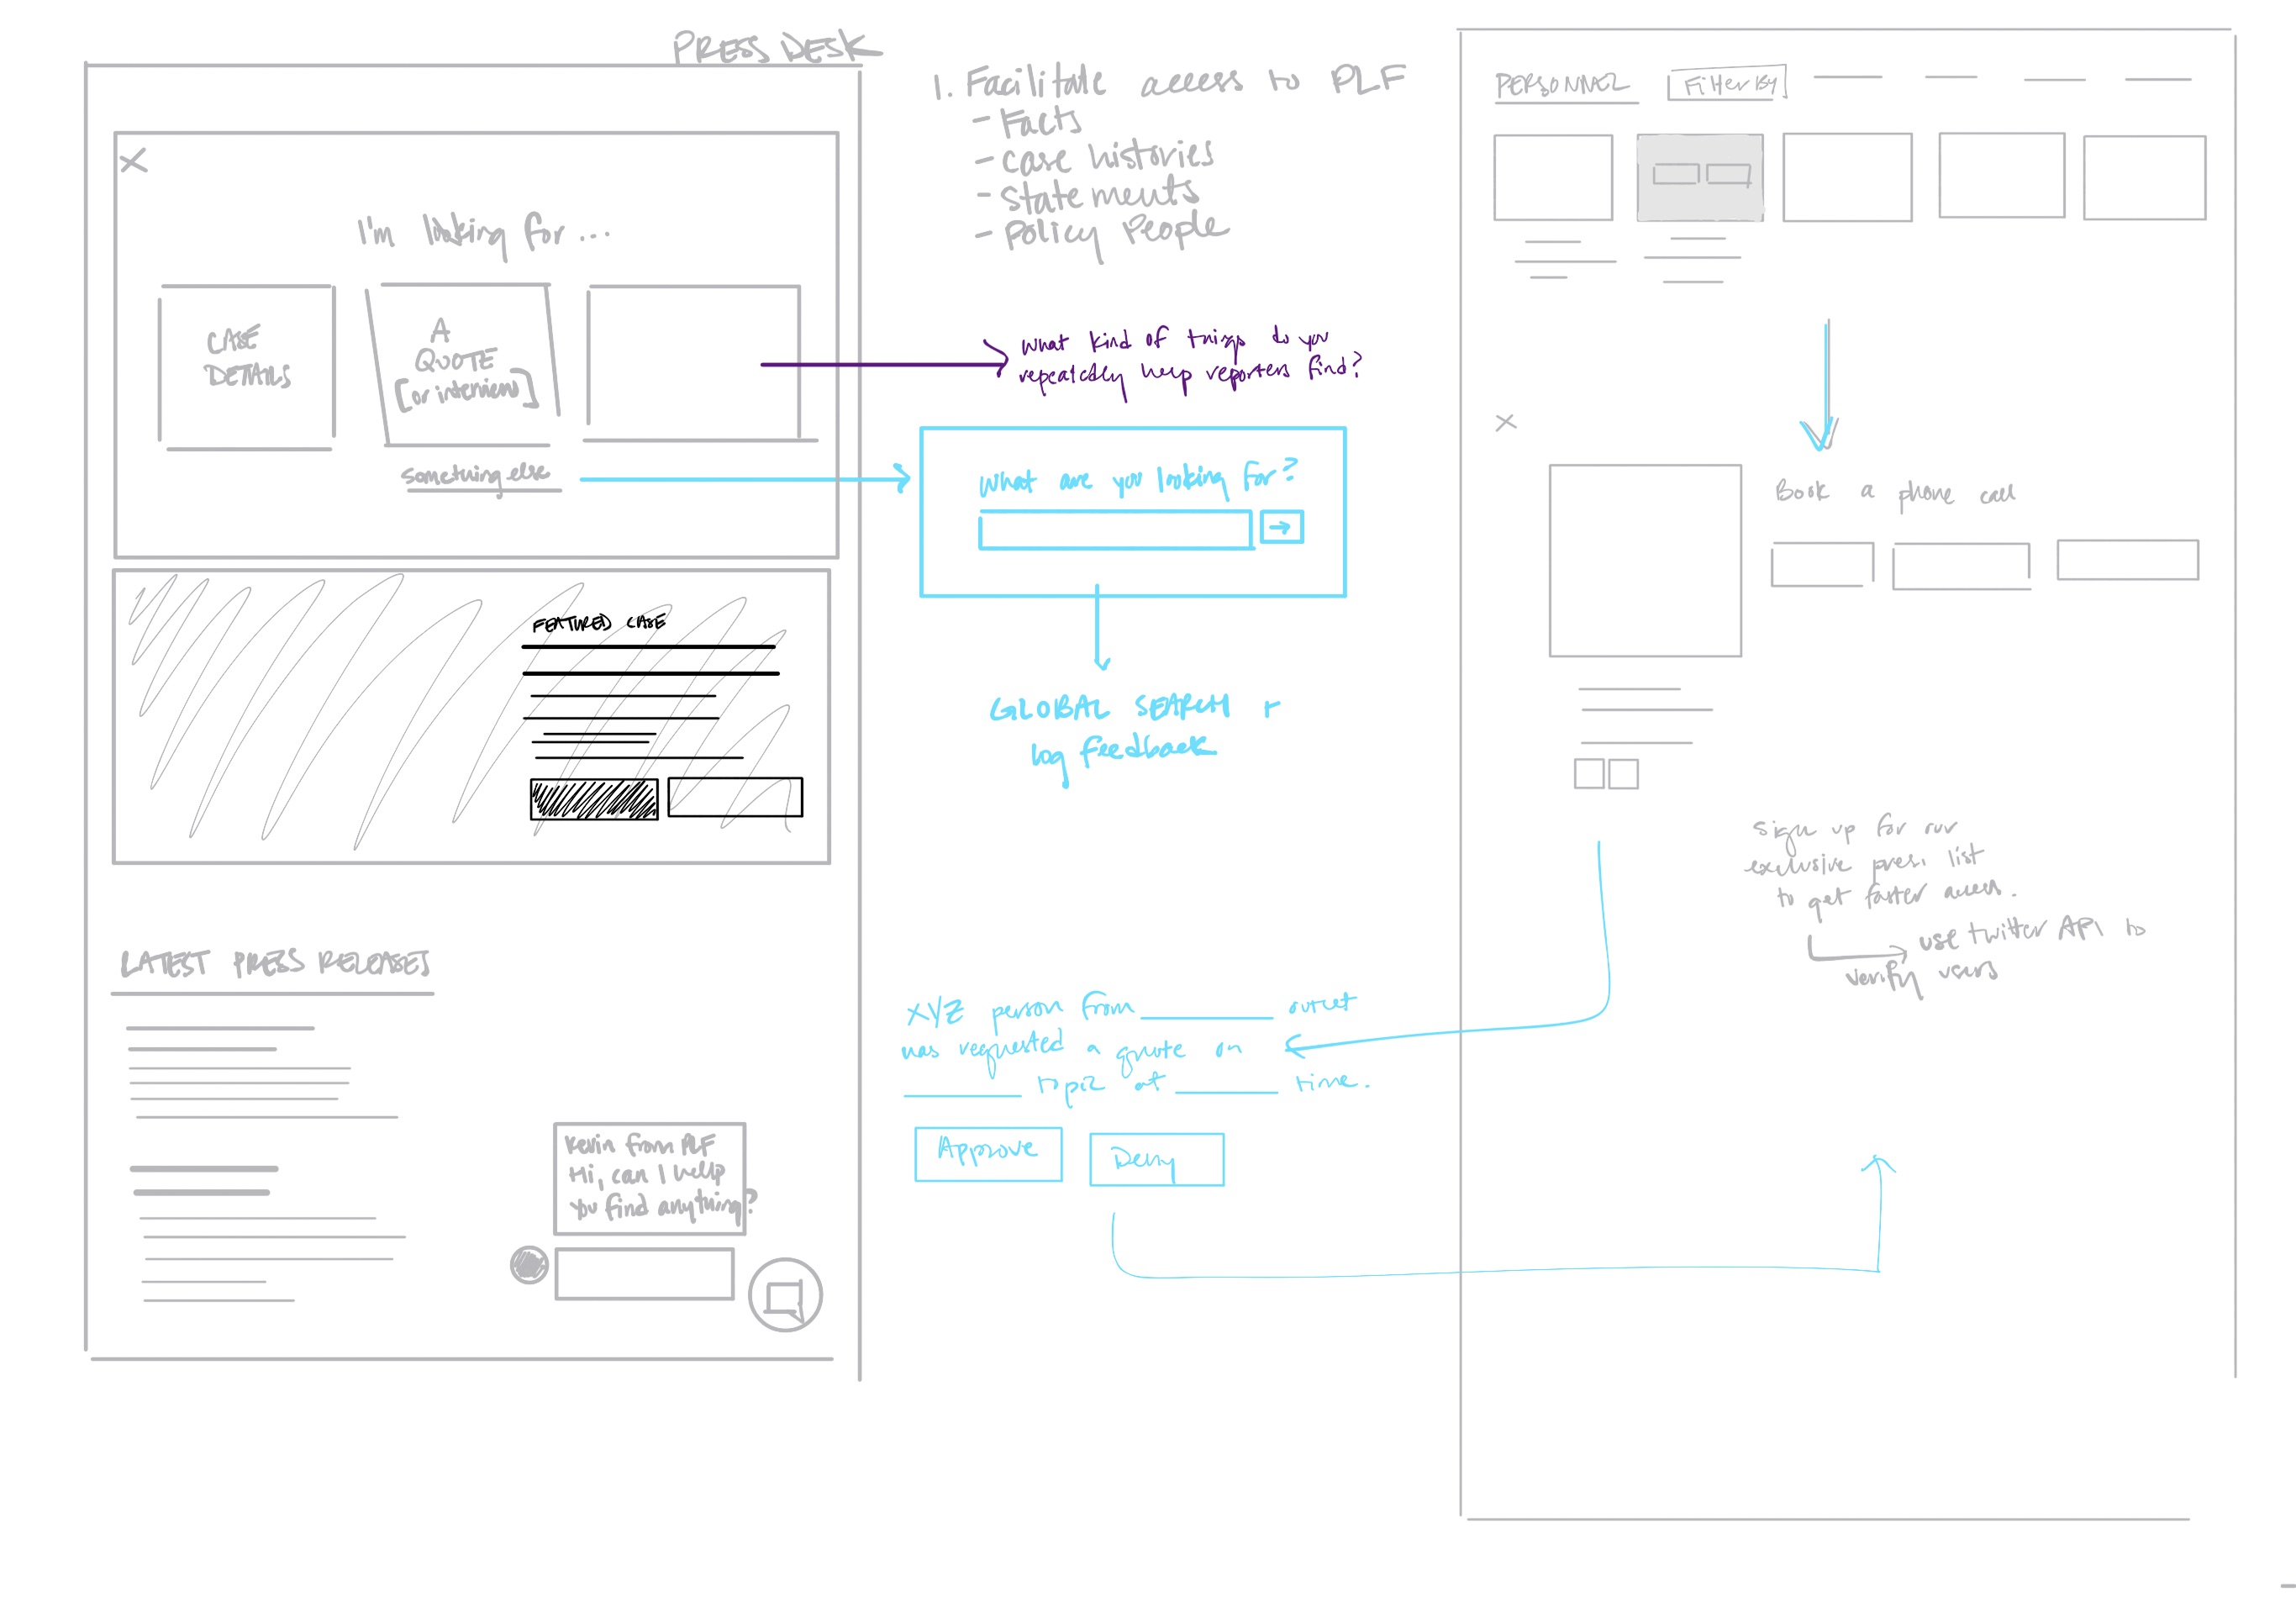 PRESS DESK
I'm looking for...
CASE
DETAILS
A
QUOTE
[or interview]
something else
FEATURED CASE
LATEST PRESS RELEASES
Kevin from PLF
Hi, can I help
you find anything?
1. Facilitate access to PLF
- Facts
- case histories
- statements
- Policy People
what kind of things do you
repeatedly help reporters find?
what are you looking for?
GLOBAL SEARCH +
log feedback
XYZ person from outlet
has requested a quote on
topic at time.
Approve
Deny
PERSONNEL
Filter by
Book a phone call
sign up for our
exclusive press list
to get faster access.
use twitter API to
verify users